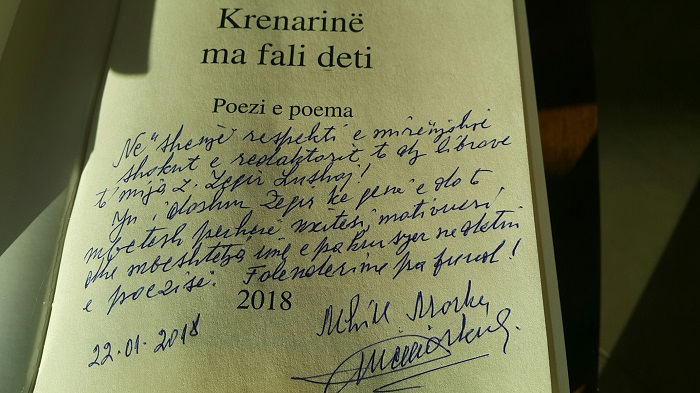 Krenarinë
ma fali deti
Poezi e poema
Në "shenjë respekti e mirënjohje
shokut e redaktorit, të dy librave
t'mijë z. Zeqir Lushaj!
Ju i dashur Zeqir ke qenë e do të
mbetesh përherë nxitësi, motivuesi,
dhe mbështetja ime e pakursyer në detin
e poezisë. Falenderime pa fund!
2018
22.01.2018
Mhill